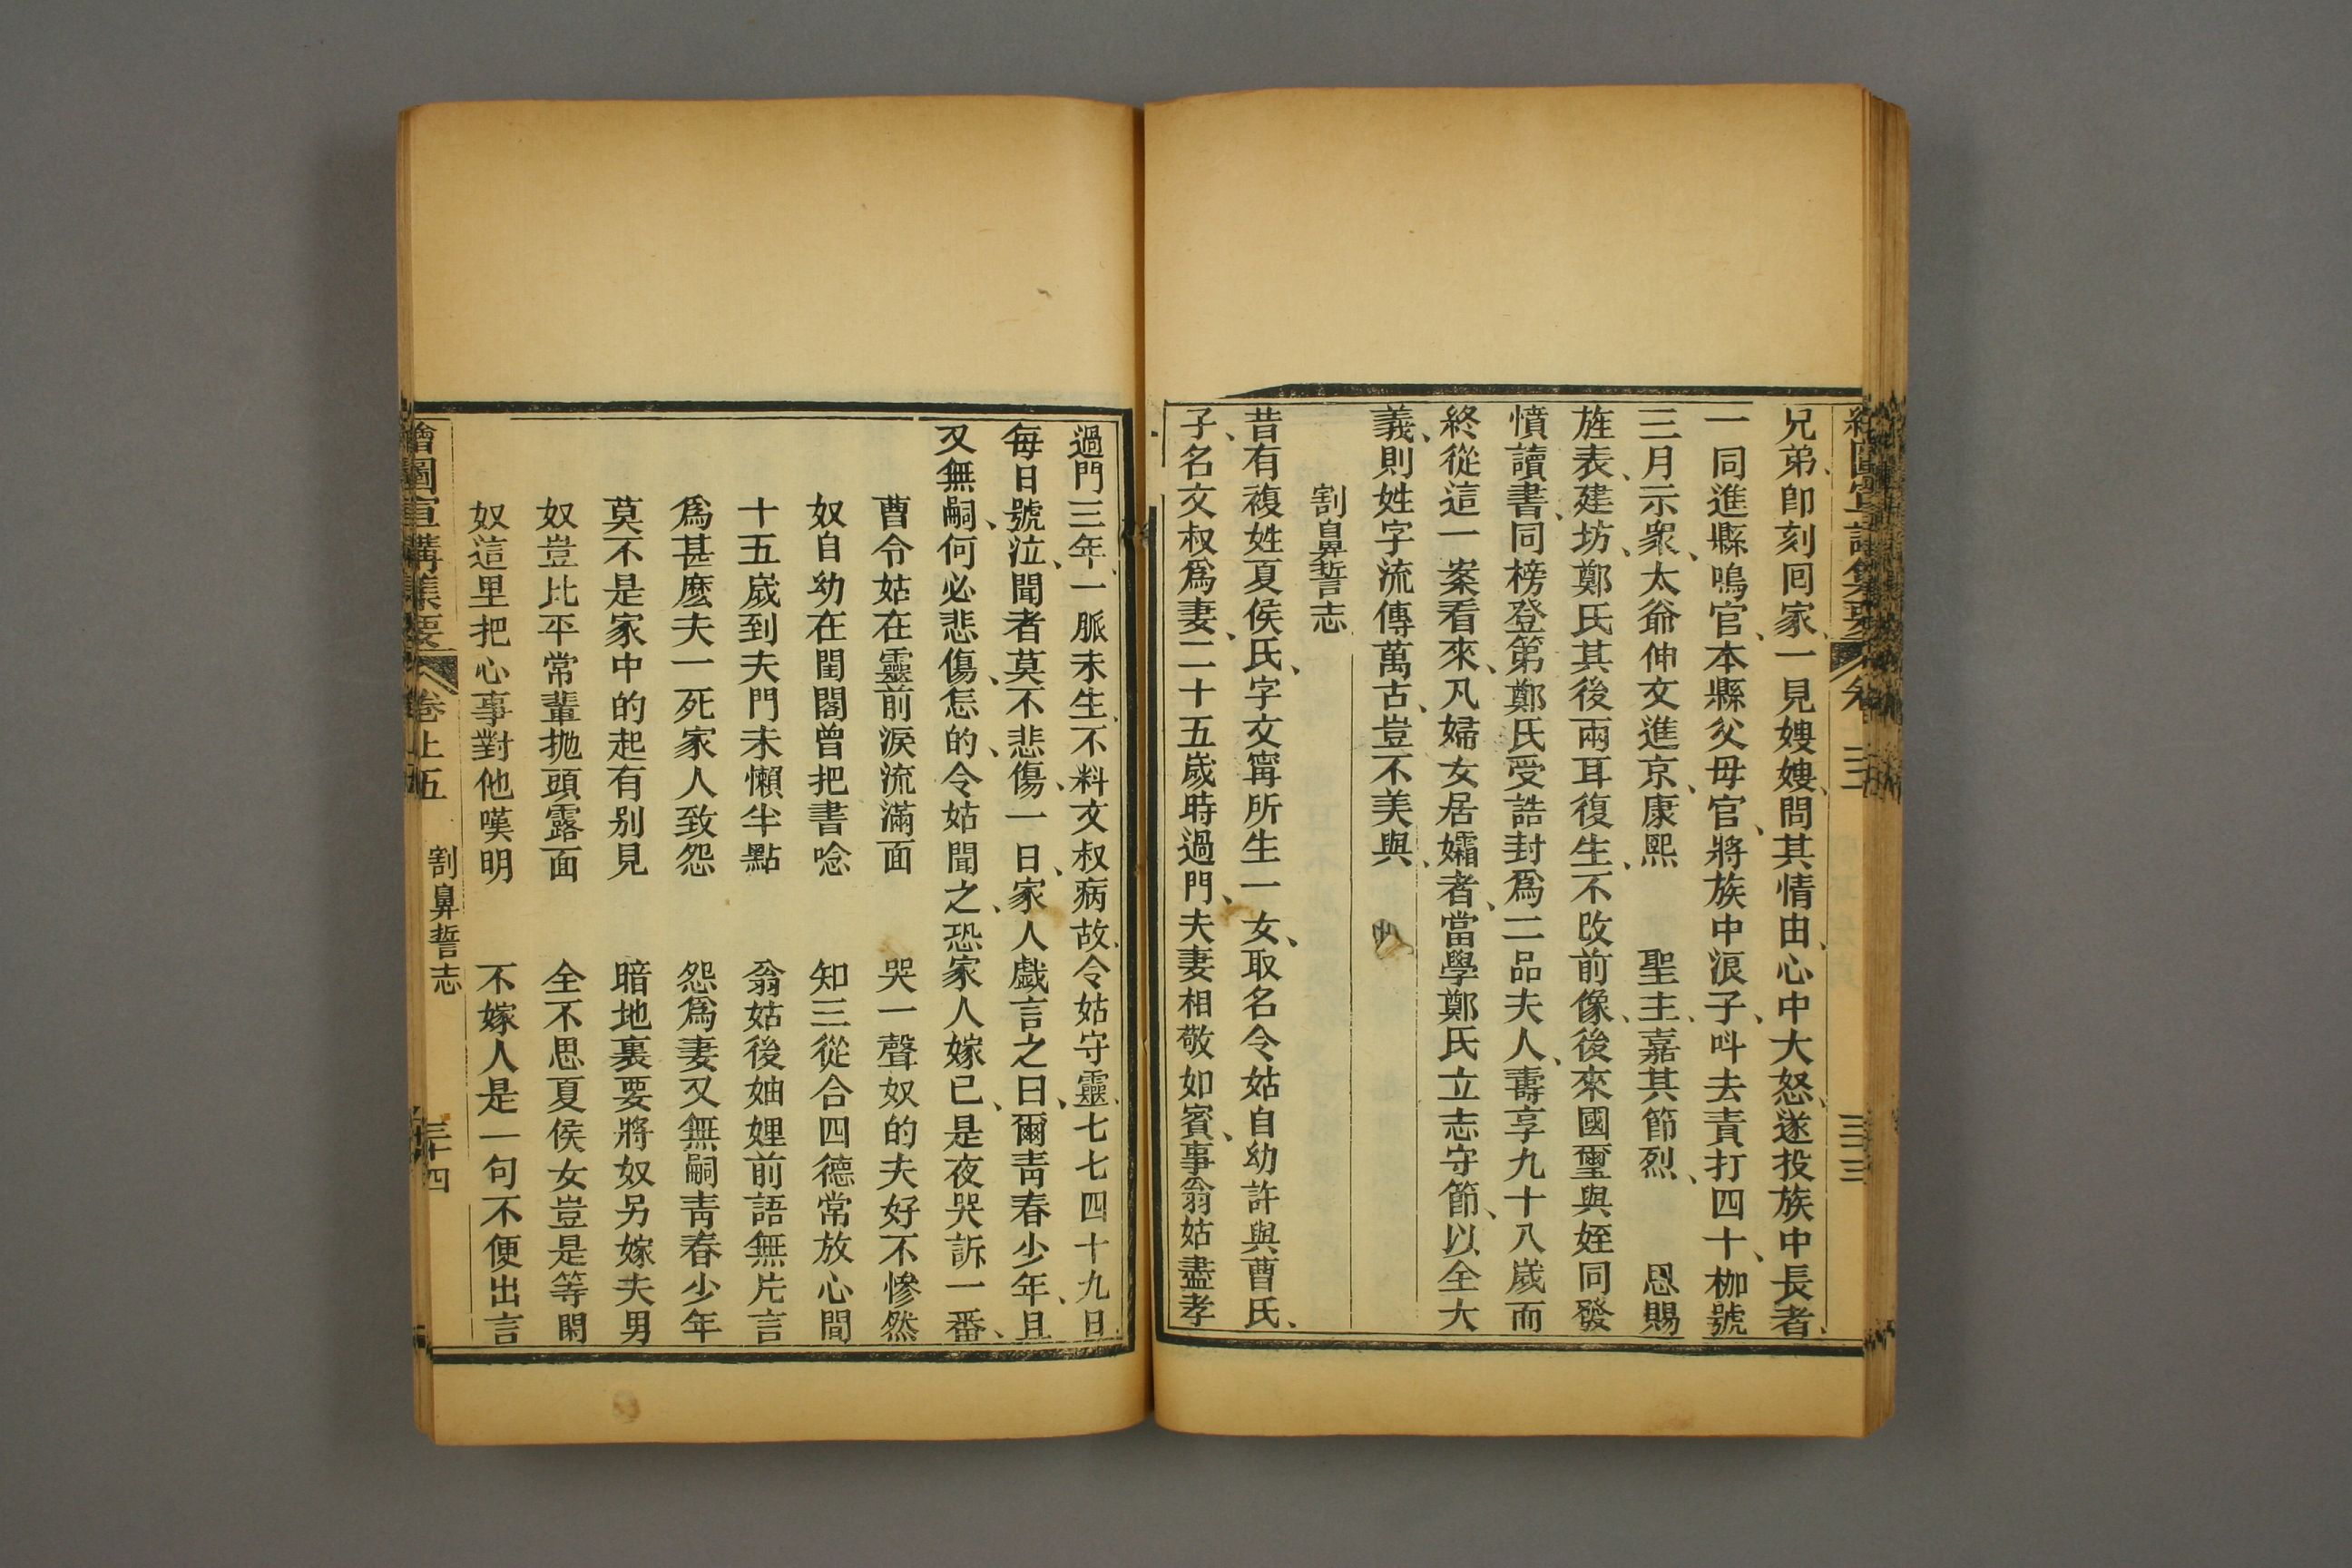 兄弟、卽刻囘家、一見嫂嫂、問其情由、心中大怒、遂投族中長者、
一同進縣鳴官、本縣父母官、將族中浪子、呌去責打四十、枷號
三月示衆、太爺伸文進京、康熙　聖主、嘉其節烈、　恩賜
旌表、建坊、鄭氏其後兩耳復生、不改前像、後來國璽與姪同發
憤讀書、同榜登第、鄭氏受誥封爲二品夫人、壽享九十八歲而
終從這一案看來、凡婦女居孀者、當學鄭氏立志守節、以全大
義、則姓字流傳萬古、豈不美與、
割鼻誓志
昔有複姓夏侯氏、字文寗所生一女、取名令姑自幼許與曹氏、
子、名文叔爲妻、二十五歲時過門、夫妻相敬如賓、事翁姑盡孝
過門三年、一脈未生、不料文叔病故、令姑守靈、七七四十九日、
每日號泣、聞者莫不悲傷、一日、家人戲言之曰、爾靑春少年、且
又無嗣、何必悲傷、怎的、令姑聞之、恐家人嫁已、是夜哭訴一番、
曹令姑在靈前淚流滿面　哭一聲奴的夫好不慘然
奴自幼在閨閣曾把書唸　知三從合四德常放心間
十五歲到夫門未懶半點　翁姑後妯娌前語無片言
爲甚麽夫一死家人致怨　怨爲妻又無嗣靑春少年
莫不是家中的起有别見　暗地裏要將奴另嫁夫男
奴豈比平常輩抛頭露面　全不思夏侯女豈是等閑
奴這里把心事對他嘆明　不嫁人是一句不便出言
繪圖宣講集要　卷上五　割鼻誓志　三十四